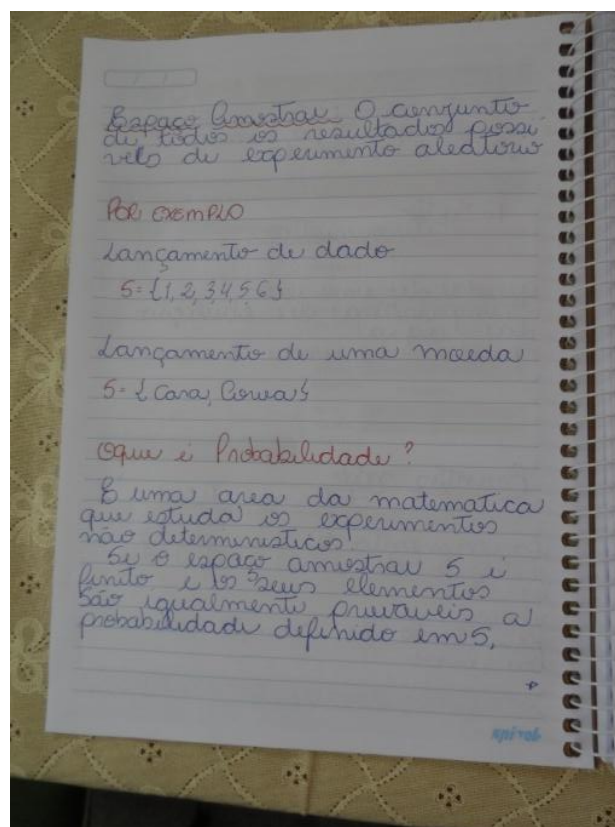 Espaço Amostral: O conjunto
de todos os resultados possi
veis de experimento aleatorio
POR EXEMPLO
Lançamento de dado
S={1,2,3,4,5,6}
Lançamento de uma moeda
S={Cara, Coroa}
Oque é Probabilidade?
É uma area da matematica
que estuda os experimentos
não deterministicos.
Se o espaço amostral S é
finito e os seus elementos
são igualmente provaveis a
probabilidade definido em S,
spiral